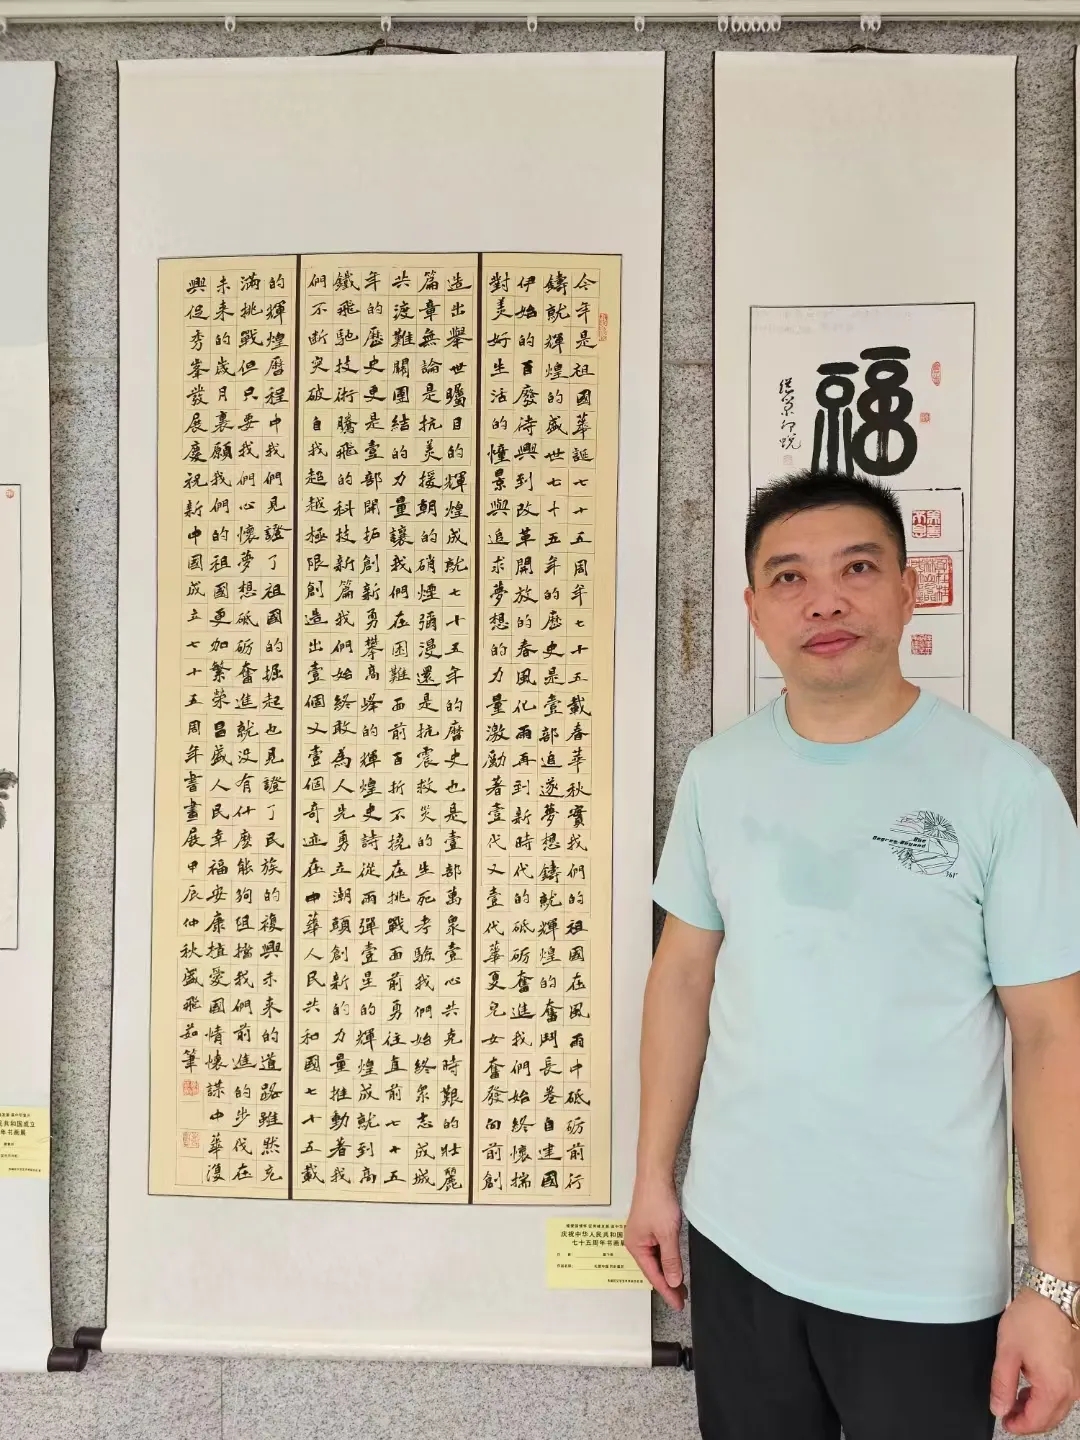 今年是祖國華誕七十五周年七十五載春華秋實我們的祖國在風雨中砥砺前行
鑄就輝煌的盛世七十五年的歷史是壹部追逐夢想鑄就輝煌的奮鬥長卷自建國
伊始的百廢待興到改革開放的春風化雨再到新時代的砥砺奮進我們始終懷揣
對美好生活的憧景與追求夢想的力量激勵著壹代又壹代華夏兒女奮發向前創
造出舉世矚目的輝煌成就七十五年的曆史也是壹部萬衆壹心共克時艱的壯麗
篇章無論是抗美援朝的硝煙彌漫還是抗震救災的生死考驗我們始終衆志成城
共渡難關團結的力量讓我們在困難面前百折不撓在挑戰面前勇往直前七十五
年的歷史更是壹部開拓創新勇攀高峰的輝煌史詩從兩彈壹星的輝煌成就到高
鐵飛馳技術騰飛的科技新篇我們始終敢為人先勇立潮頭創新的力量推動著我
們不斷突破自我超越極限創造出壹個又壹個奇迹在中華人民共和國七十五載
的輝煌曆程中我們見證了祖國的掘起也見證了民族的複興未来的道路雖然充
滿挑戰但只要我們心懷夢想砥砺奮進就没有什麼能夠阻擋我們前進的步伐在
未来的歲月裏願我們的祖國更加繁榮昌盛人民幸福安康植愛國情懷謀中華復
興促秀峯發展慶祝新中國成立七十五周年書畫展甲辰仲秋盛飛茹筆
福
庆祝中华人民共和国
七十五周年书画展
民共和国成立
年书画展
One
Degree Beyond
361°